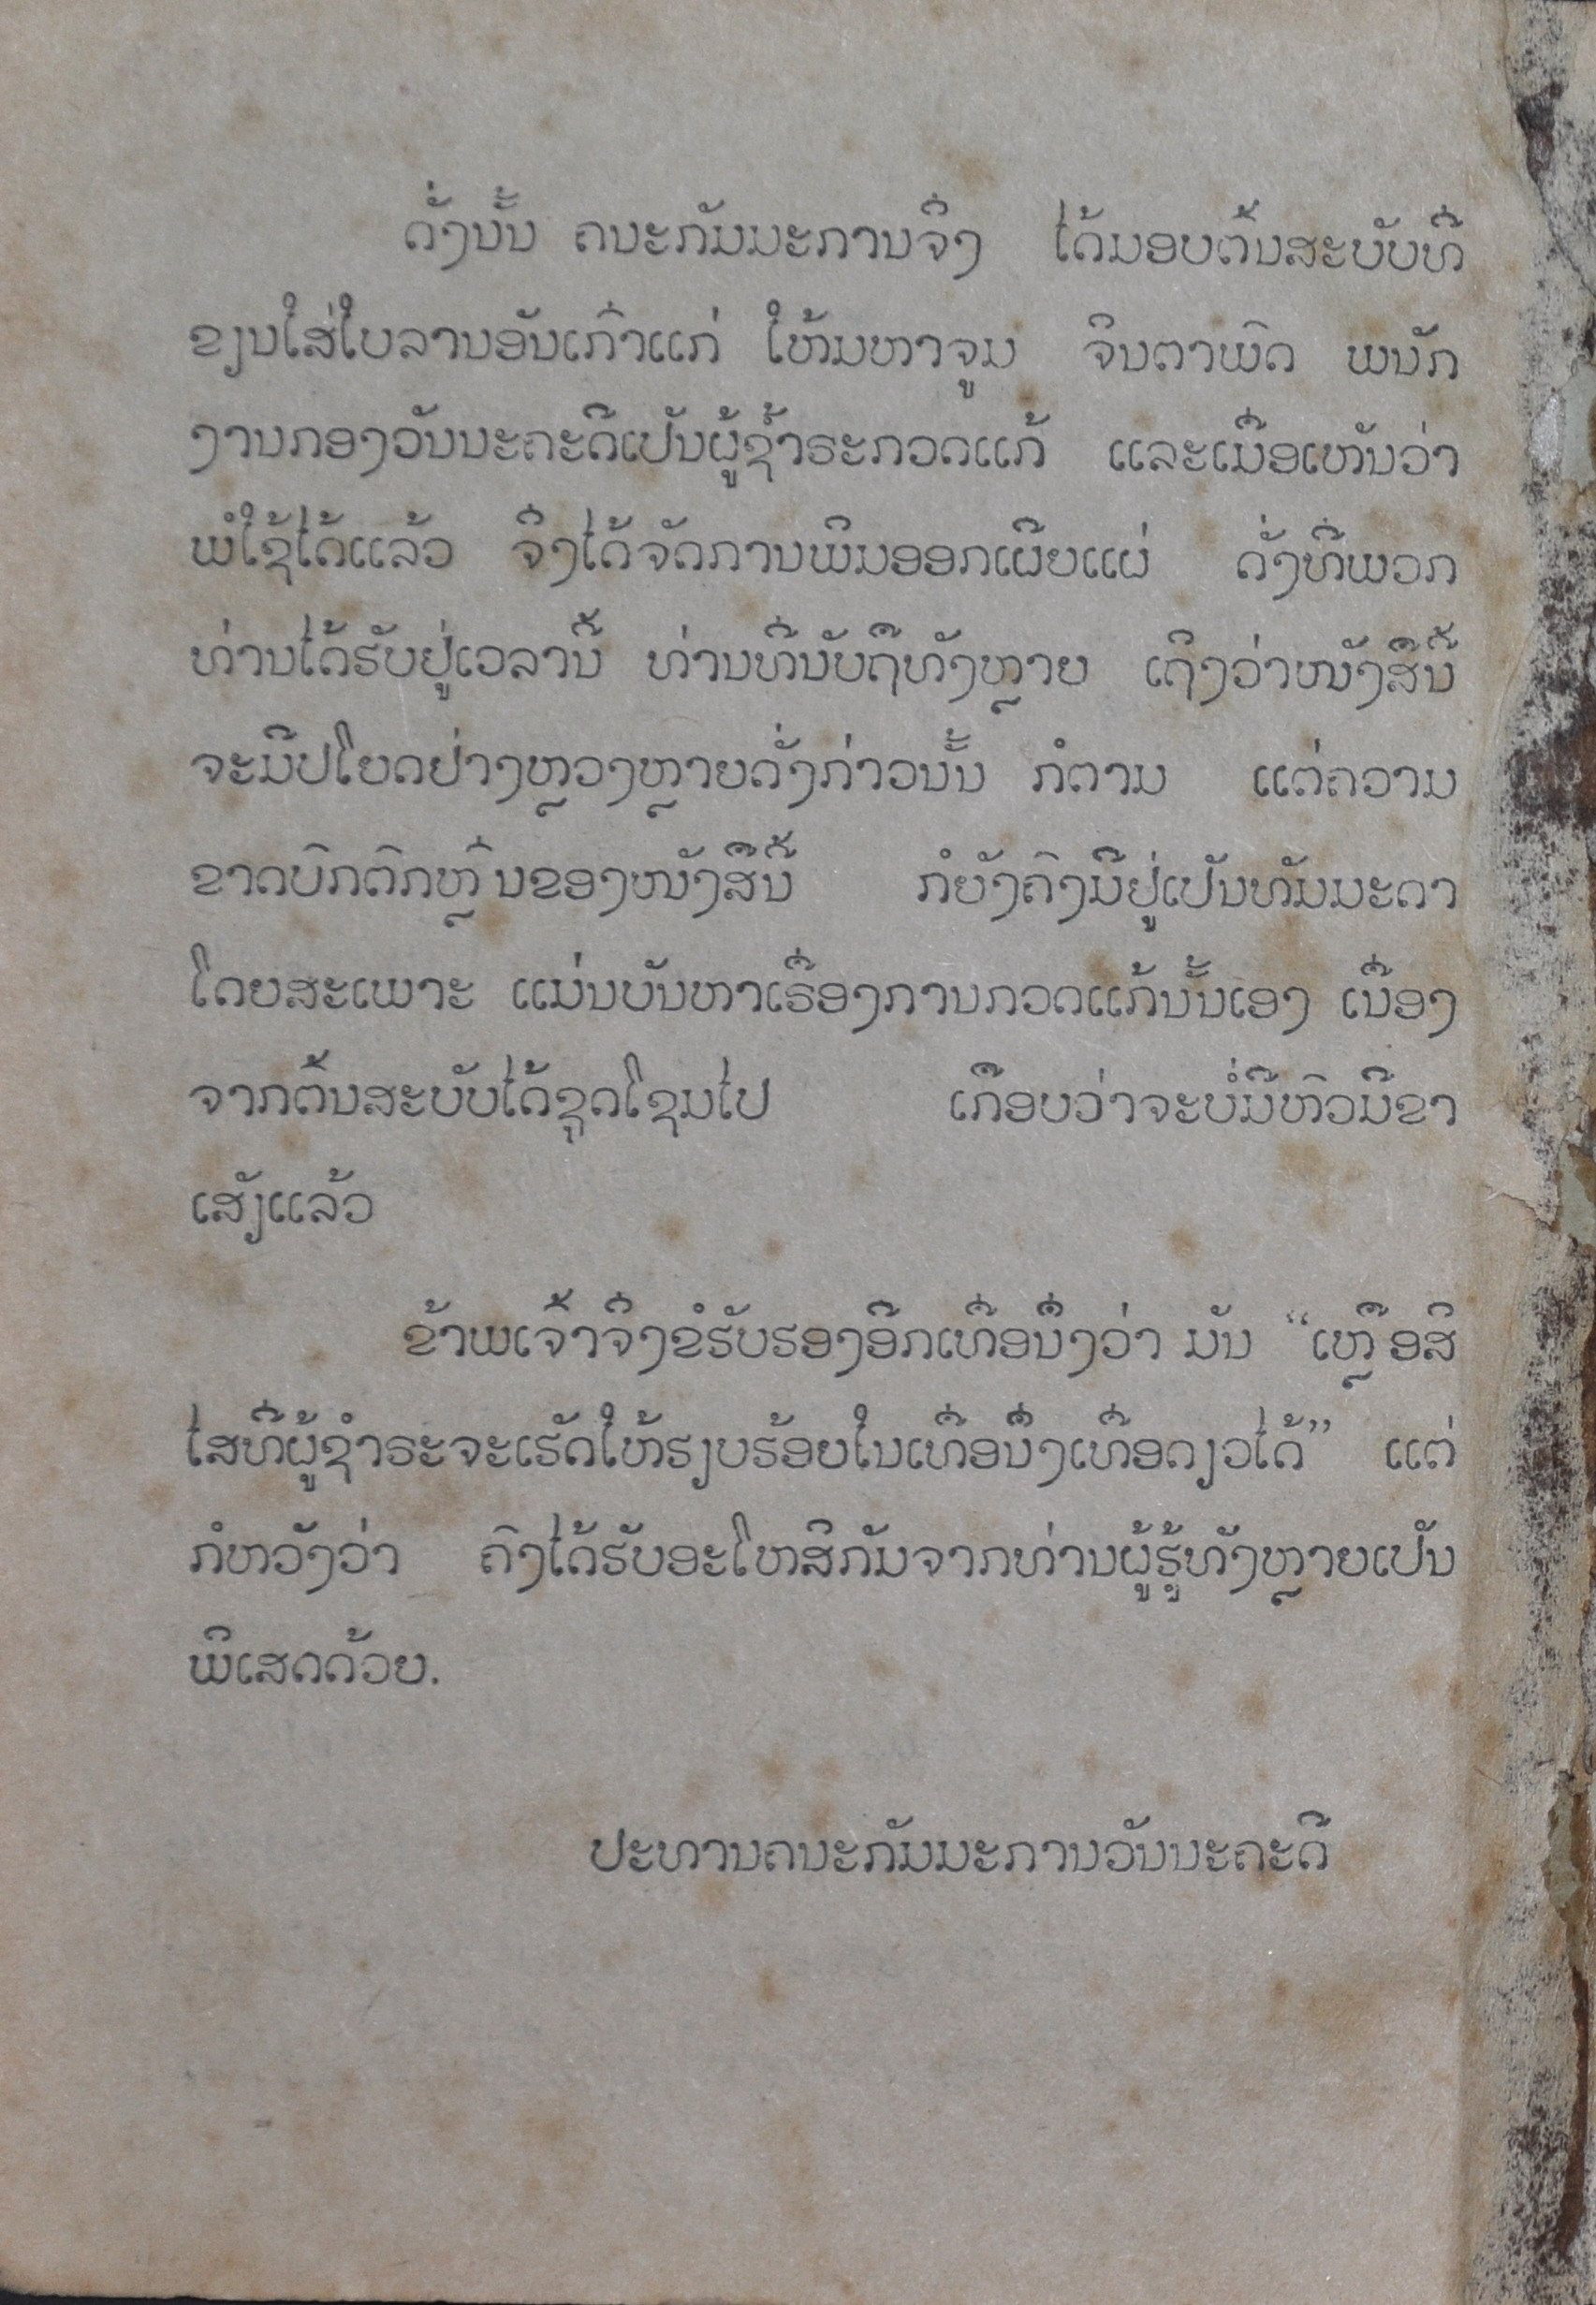 ດັ່ງນັ້ນ ຄນະກັມມະການຈຶ່ງ ໄດ້ມອບຕົ້ນສະບັບທີ່
ຂຽນໃສ່ໃບລານອັນເກົ່າແກ່ ໃຫ້ມຫາຈູມ ຈິນຕາພົດ ພນັກ
ງານກອງວັນນະຄະດີເປັນຜູ້ຊໍ້າຣະກວດແກ້ ແລະເມື່ອເຫັນວ່າ
ພໍໃຊ້ໄດ້ແລ້ວ ຈຶ່ງໄດ້ຈັດການພິມອອກເຜີຍແຜ່ ດັ່ງທີ່ພວກ
ທ່ານໄດ້ຮັບຢູ່ເວລານີ້ ທ່ານທີ່ນັບຖືທັງຫຼາຍ ເຖິງວ່າໜັງສືນີ້
ຈະມີປໂຍດຢ່າງຫຼວງຫຼາຍດັ່ງກ່າວນັ້ນ ກໍຕາມ ແຕ່ຄວາມ
ຂາດບົກຕົກຫຼົ່ນຂອງໜັງສືນີ້ ກໍຍັງຄົງມີຢູ່ເປັນທັມມະດາ
ໂດຍສະເພາະ ແມ່ນບັນຫາເຣື່ອງການກວດແກ້ນັ້ນເອງ ເນື່ອງ
ຈາກຕົ້ນສະບັບໄດ້ຊຸດໂຊມໄປ ເກືອບວ່າຈະບໍ່ມີຫົວມີຂາ
ເສັງແລ້ວ
ຂ້າພເຈົ້າຈຶ່ງຂໍຮັບຮອງອີກເທື່ອນຶ່ງວ່າ ມັນ “ເຫຼືອສີ
ໄສທີ່ຜູ້ຊໍາຣະຈະເຮັດໃຫ້ຮຽບຮ້ອຍໃນເທື່ອນຶ່ງເທື່ອດຽວໄດ້” ແຕ່
ກໍຫວັງວ່າ ຄົງໄດ້ຮັບອະໂຫສິກັມຈາກທ່ານຜູ້ຮູ້ທັງຫຼາຍເປັນ
ພິເສດດ້ວຍ.
ປະທານຄນະກັມມະການວັນນະຄະດີ